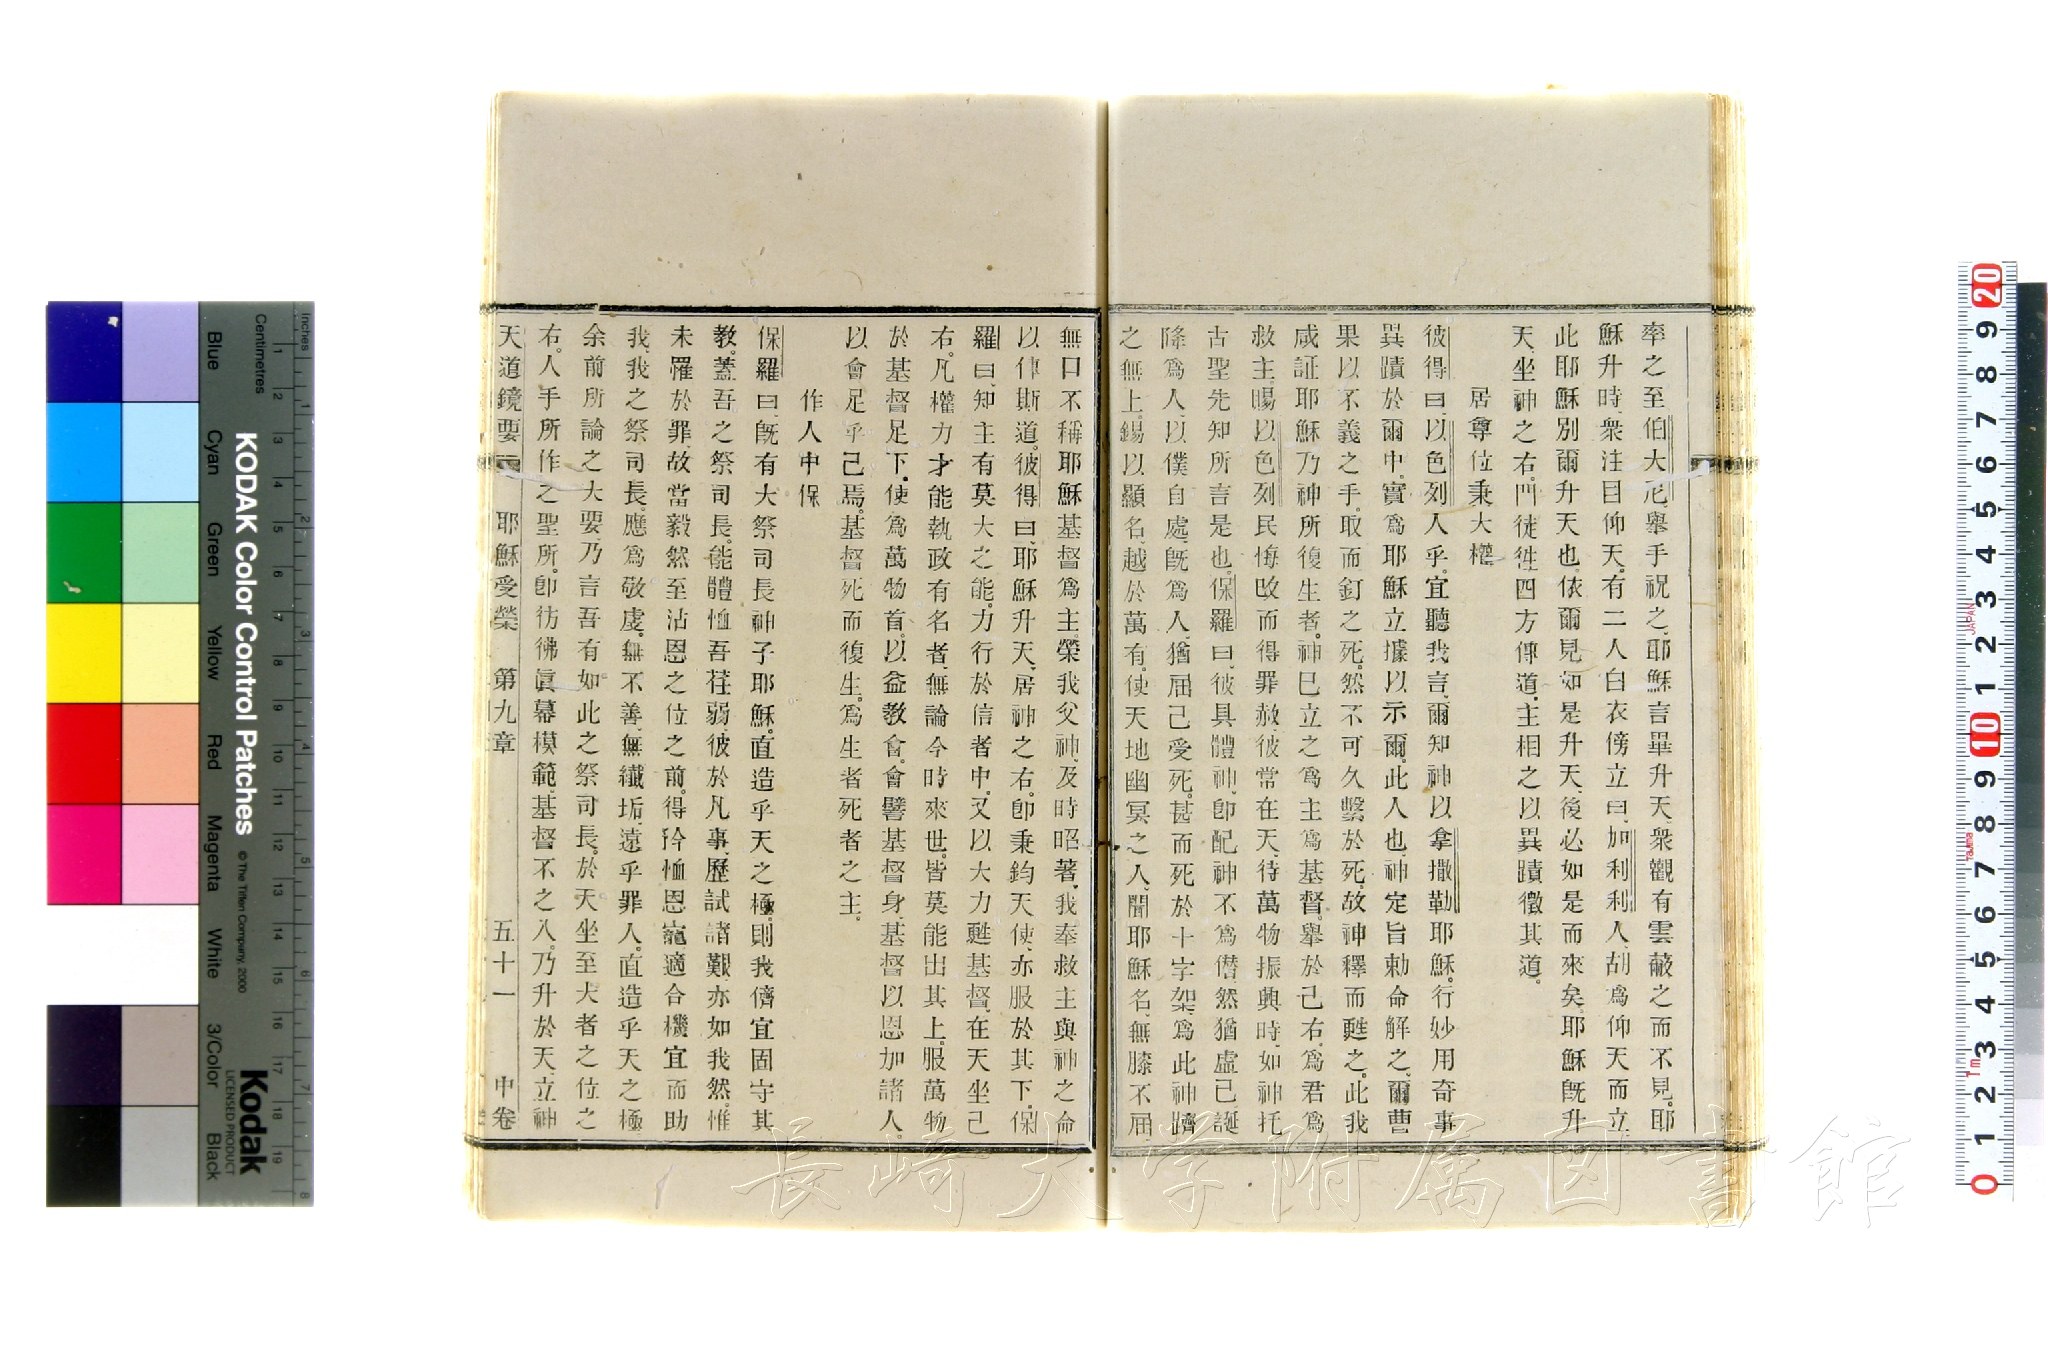 率之至伯大尼、舉手祝之、耶穌言畢升天、衆觀有雲蔽之而不見。耶
穌升時、衆注目仰天、有二人白衣傍立曰、加利利人、胡爲仰天而立
此耶穌別爾升天也、依爾見如是升天、後必如是而來矣、耶穌旣升
天、坐神之右、門徒徃四方傳道、主相之以異蹟徵其道。
居尊位秉大權
彼得曰、以色列人乎、宜聽我言、爾知神以拿撒勒耶穌。行妙用奇事
異蹟於爾中、實爲耶穌立據以示爾。此人也、神定旨勅命解之、爾曹
果以不義之手。取而釘之死。然不可久繫於死。故神釋而甦之。此我
咸証耶穌乃神所復生者。神已立之爲主爲基督。舉於己右。爲君爲
救主、賜以色列民悔改而得罪赦、彼常在天、待萬物振興時、如神托
古聖先知所言是也、保羅曰、彼具體神、卽配神不爲僭、然猶虛己誕
降爲人、以僕自處、旣爲人、猶屈己受死、甚而死於十字架、爲此神躋
之無上、錫以顯名、越於萬有、使天地幽冥之人、聞耶穌名、無膝不屈、
無口不稱耶穌基督爲主、榮我父神、及時昭著、我奉救主與神之命
以律斯道。彼得曰、耶穌升天、居神之右、卽秉鈞天使、亦服於其下、保
羅曰、知主有莫大之能。力行於信者中、又以大力甦基督、在天坐己
右。凡權力才能執政有名者、無論今時來世。皆莫能出其上。服萬物
於基督足下。使爲萬物首。以益教會。會譬基督身、基督以恩加諸人。
以會足乎己焉。基督死而復生。爲生者死者之主。
作人中保
保羅曰、旣有大祭司長神子耶穌。直造乎天之極。則我儕宜固守其
教。蓋吾之祭司長。能體恤吾荏弱、彼於凡事、歷試諸艱、亦如我然。惟
未罹於罪、故當毅然至沾恩之位之前。得矜恤恩寵、適合機宜而助
我、我之祭司長。應爲敬虔。無不善、無纖垢、遠乎罪人。直造乎天之極
余前所論之大要、乃言吾有如此之祭司長。於天坐至大者之位之
右。人手所作之聖所、卽彷彿眞幕模範、基督不之入。乃升於天、立神
天道鏡要 耶穌受榮 第九章 五十一 中卷
KODAK Color Control Patches © The Tiffen Company, 2000
Kodak
LICENSED PRODUCT
Inches
Centimetres
Blue Cyan Green Yellow Red Magenta White 3/Color Black
長崎大学附属図書館
JAPAN